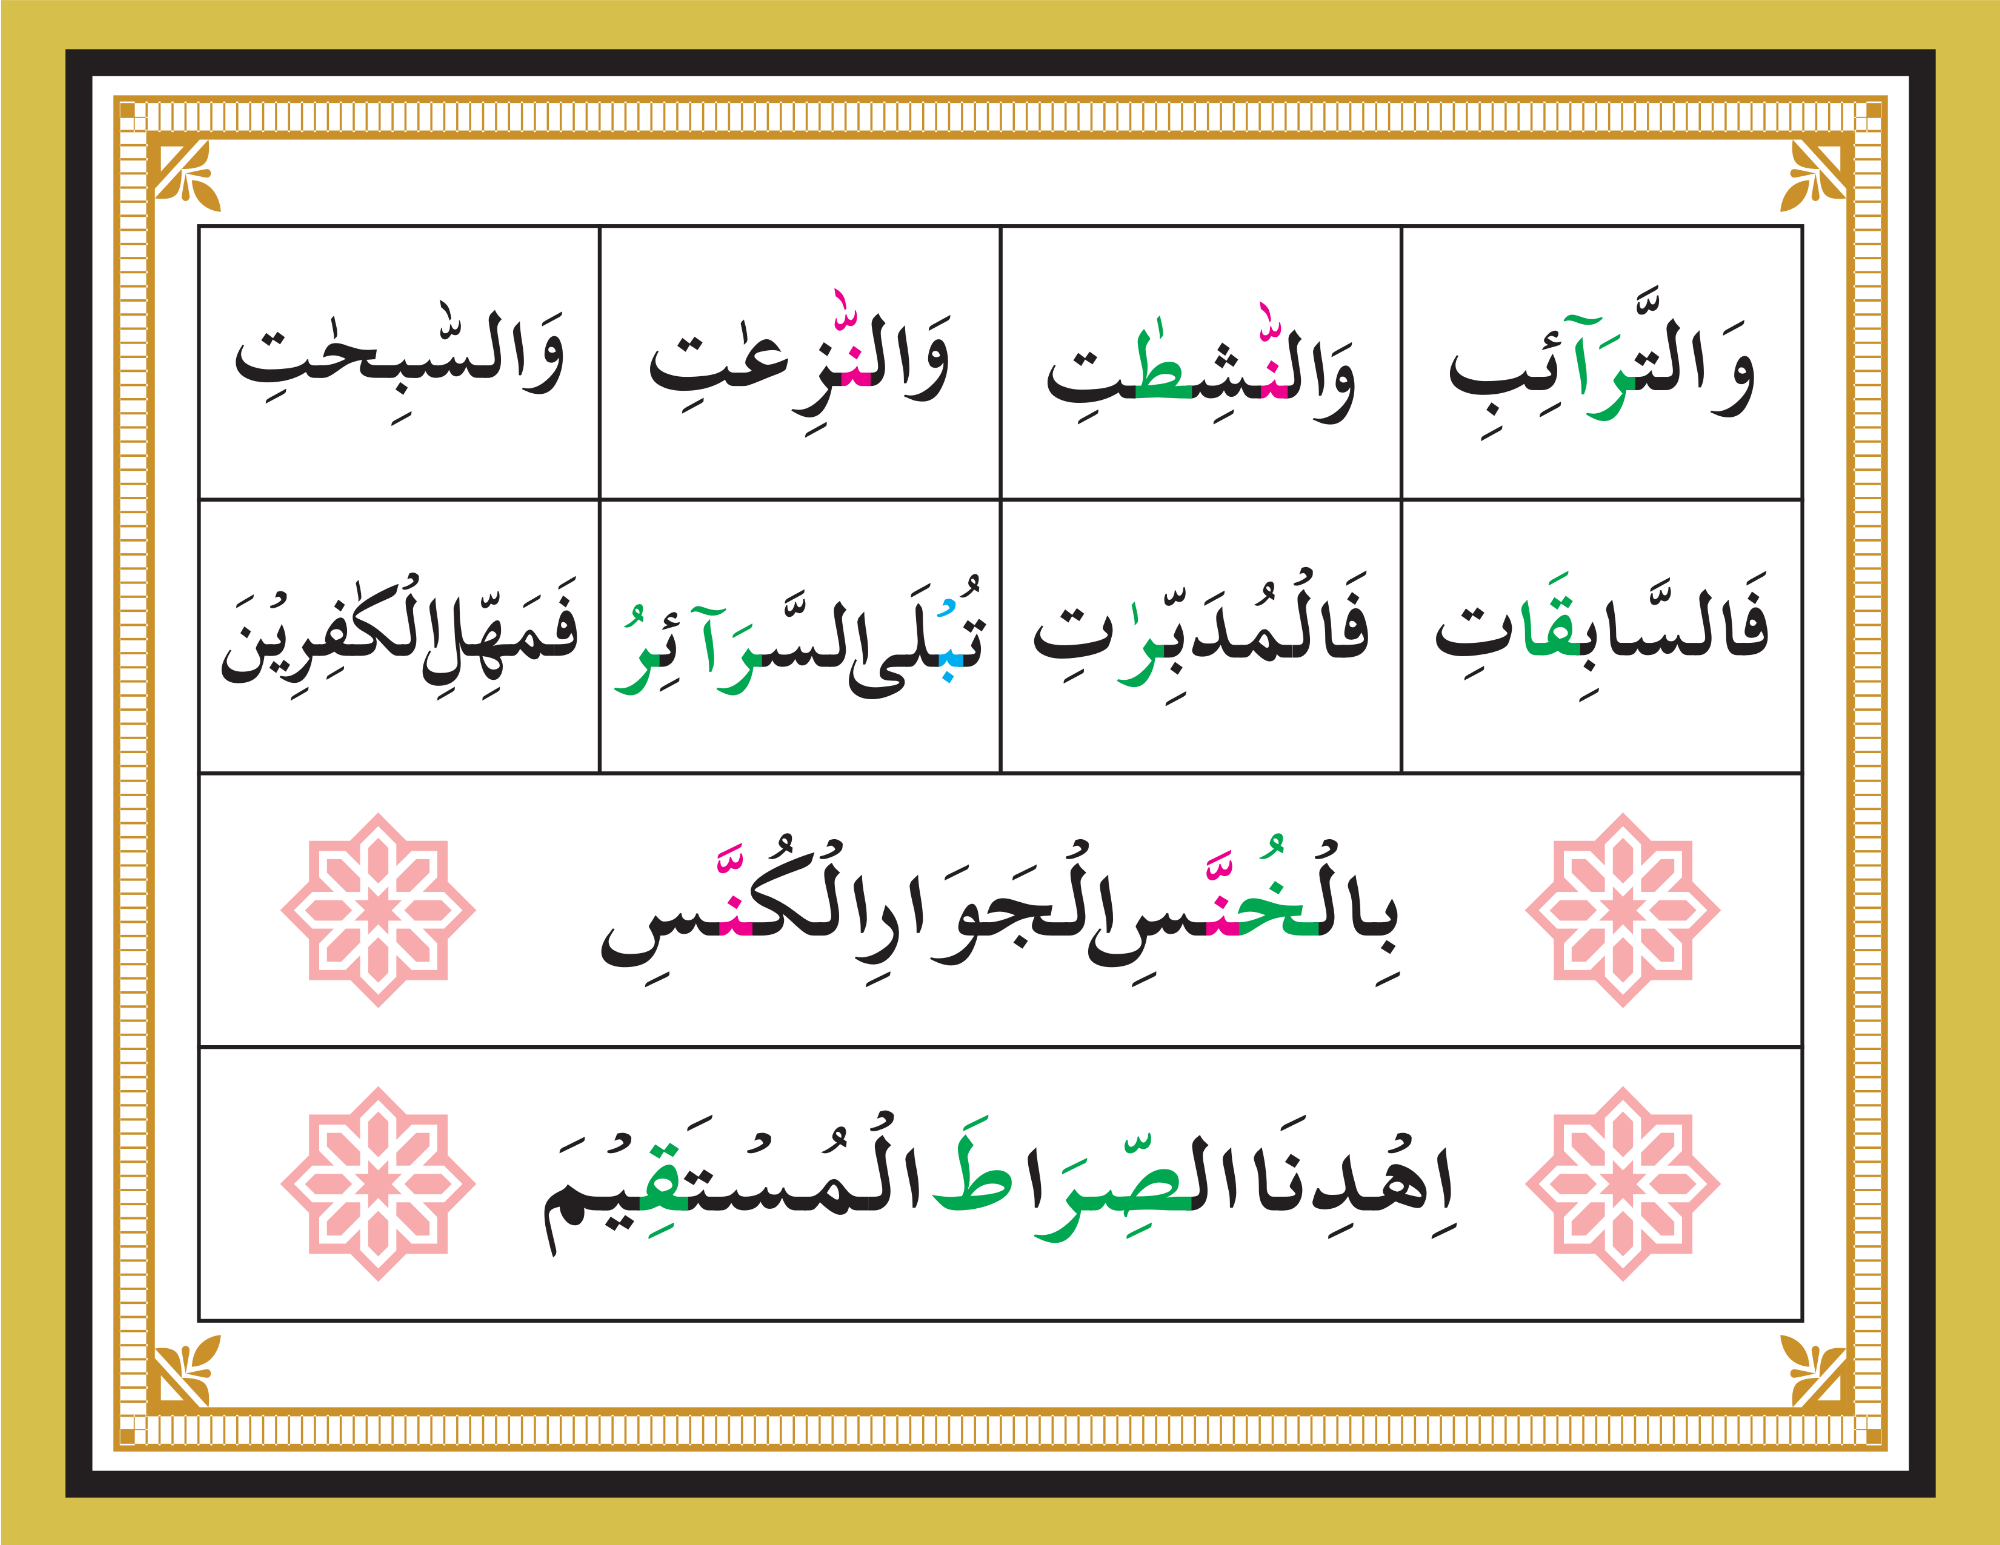 وَالتَّرَآئِبِ وَالنّٰشِطٰتِ وَالنّٰزِعٰتِ وَالسّٰبِحٰتِ
فَالسَّابِقَاتِ فَالْمُدَبِّرٰتِ تُبْلَى السَّرَآئِرُ فَمَهِّلِ الْكٰفِرِيْنَ
بِالْخُنَّسِ الْجَوَارِ الْكُنَّسِ
اِهْدِنَا الصِّرَاطَ الْمُسْتَقِيْمَ